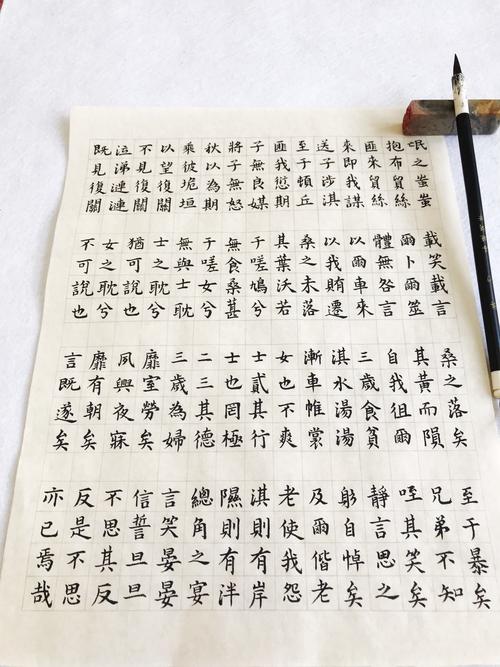 氓之蚩蚩
抱布貿絲
匪來貿絲
來即我謀
送子涉淇
至于頓丘
匪我愆期
子無良媒
將子無怒
秋以為期
乘彼垝垣
以望復關
不見復關
泣涕漣漣
既見復關
載笑載言
爾卜爾筮
體無咎言
以爾車來
以我賄遷
桑之未落
其葉沃若
于嗟鳩兮
無食桑甚
于嗟女兮
無與士耽
士之耽兮
猶可說也
女之耽兮
不可說也
桑之落矣
其黃而隕
自我徂爾
三歲食貧
淇水湯湯
漸車帷裳
女也不爽
士貳其行
士也罔極
二三其德
三歲為婦
靡室勞矣
夙興夜寐
靡有朝矣
言既遂矣
至于暴矣
兄弟不知
咥其笑矣
靜言思之
躬自悼矣
及爾偕老
老使我怨
淇則有岸
隰則有泮
總角之宴
言笑晏晏
信誓旦旦
不思其反
反是不思
亦已焉哉